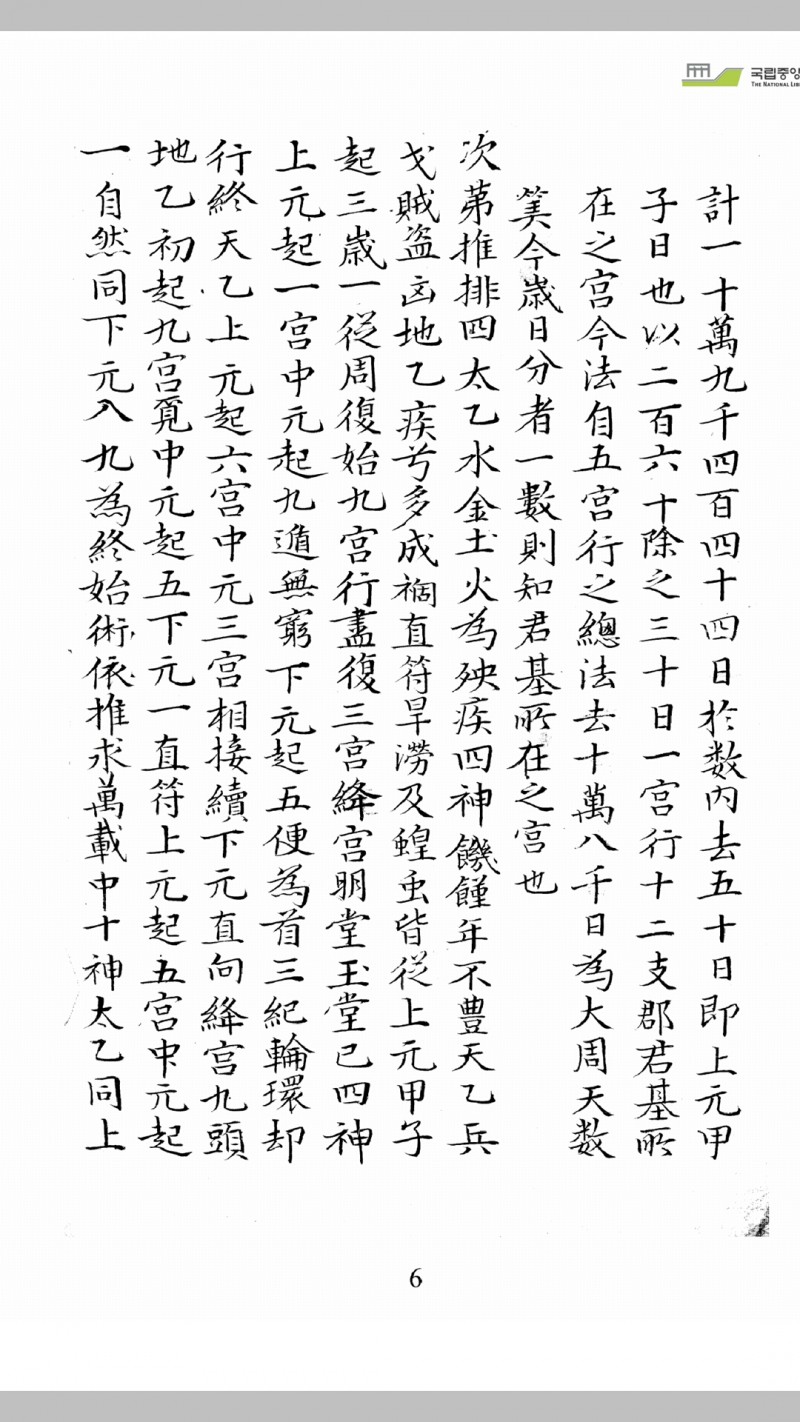 국립중앙
THE NATIONAL LIB
計一十萬九千四百四十四日扵数内去五十日即上元甲
子日也以二百六十除之三十日一宫行十二支郡君基所
在之宫今法自五宫行之總法去十萬八千日為大周天数
筭今歳日分者一數則知君基所在之宫也
次苐推排四太乙水金土火為殃疾四神饑饉年不豊天乙兵
戈賊盗凶地乙疾兮多成禍直符旱澇及蝗虫皆從上元甲子
起三歳一從周復始九宫行盡復三宫絳宫明堂玉堂已四神
上元起一宫中元起九遁無窮下元起五便為首三紀輪環却
行終天乙上元起六宫中元三宫相接續下元直向絳宫九頭
地乙初起九宫覓中元起五下元一直符上元起五宫中元起
一自然同下元八九為終始術依推求萬載中十神太乙同上
6